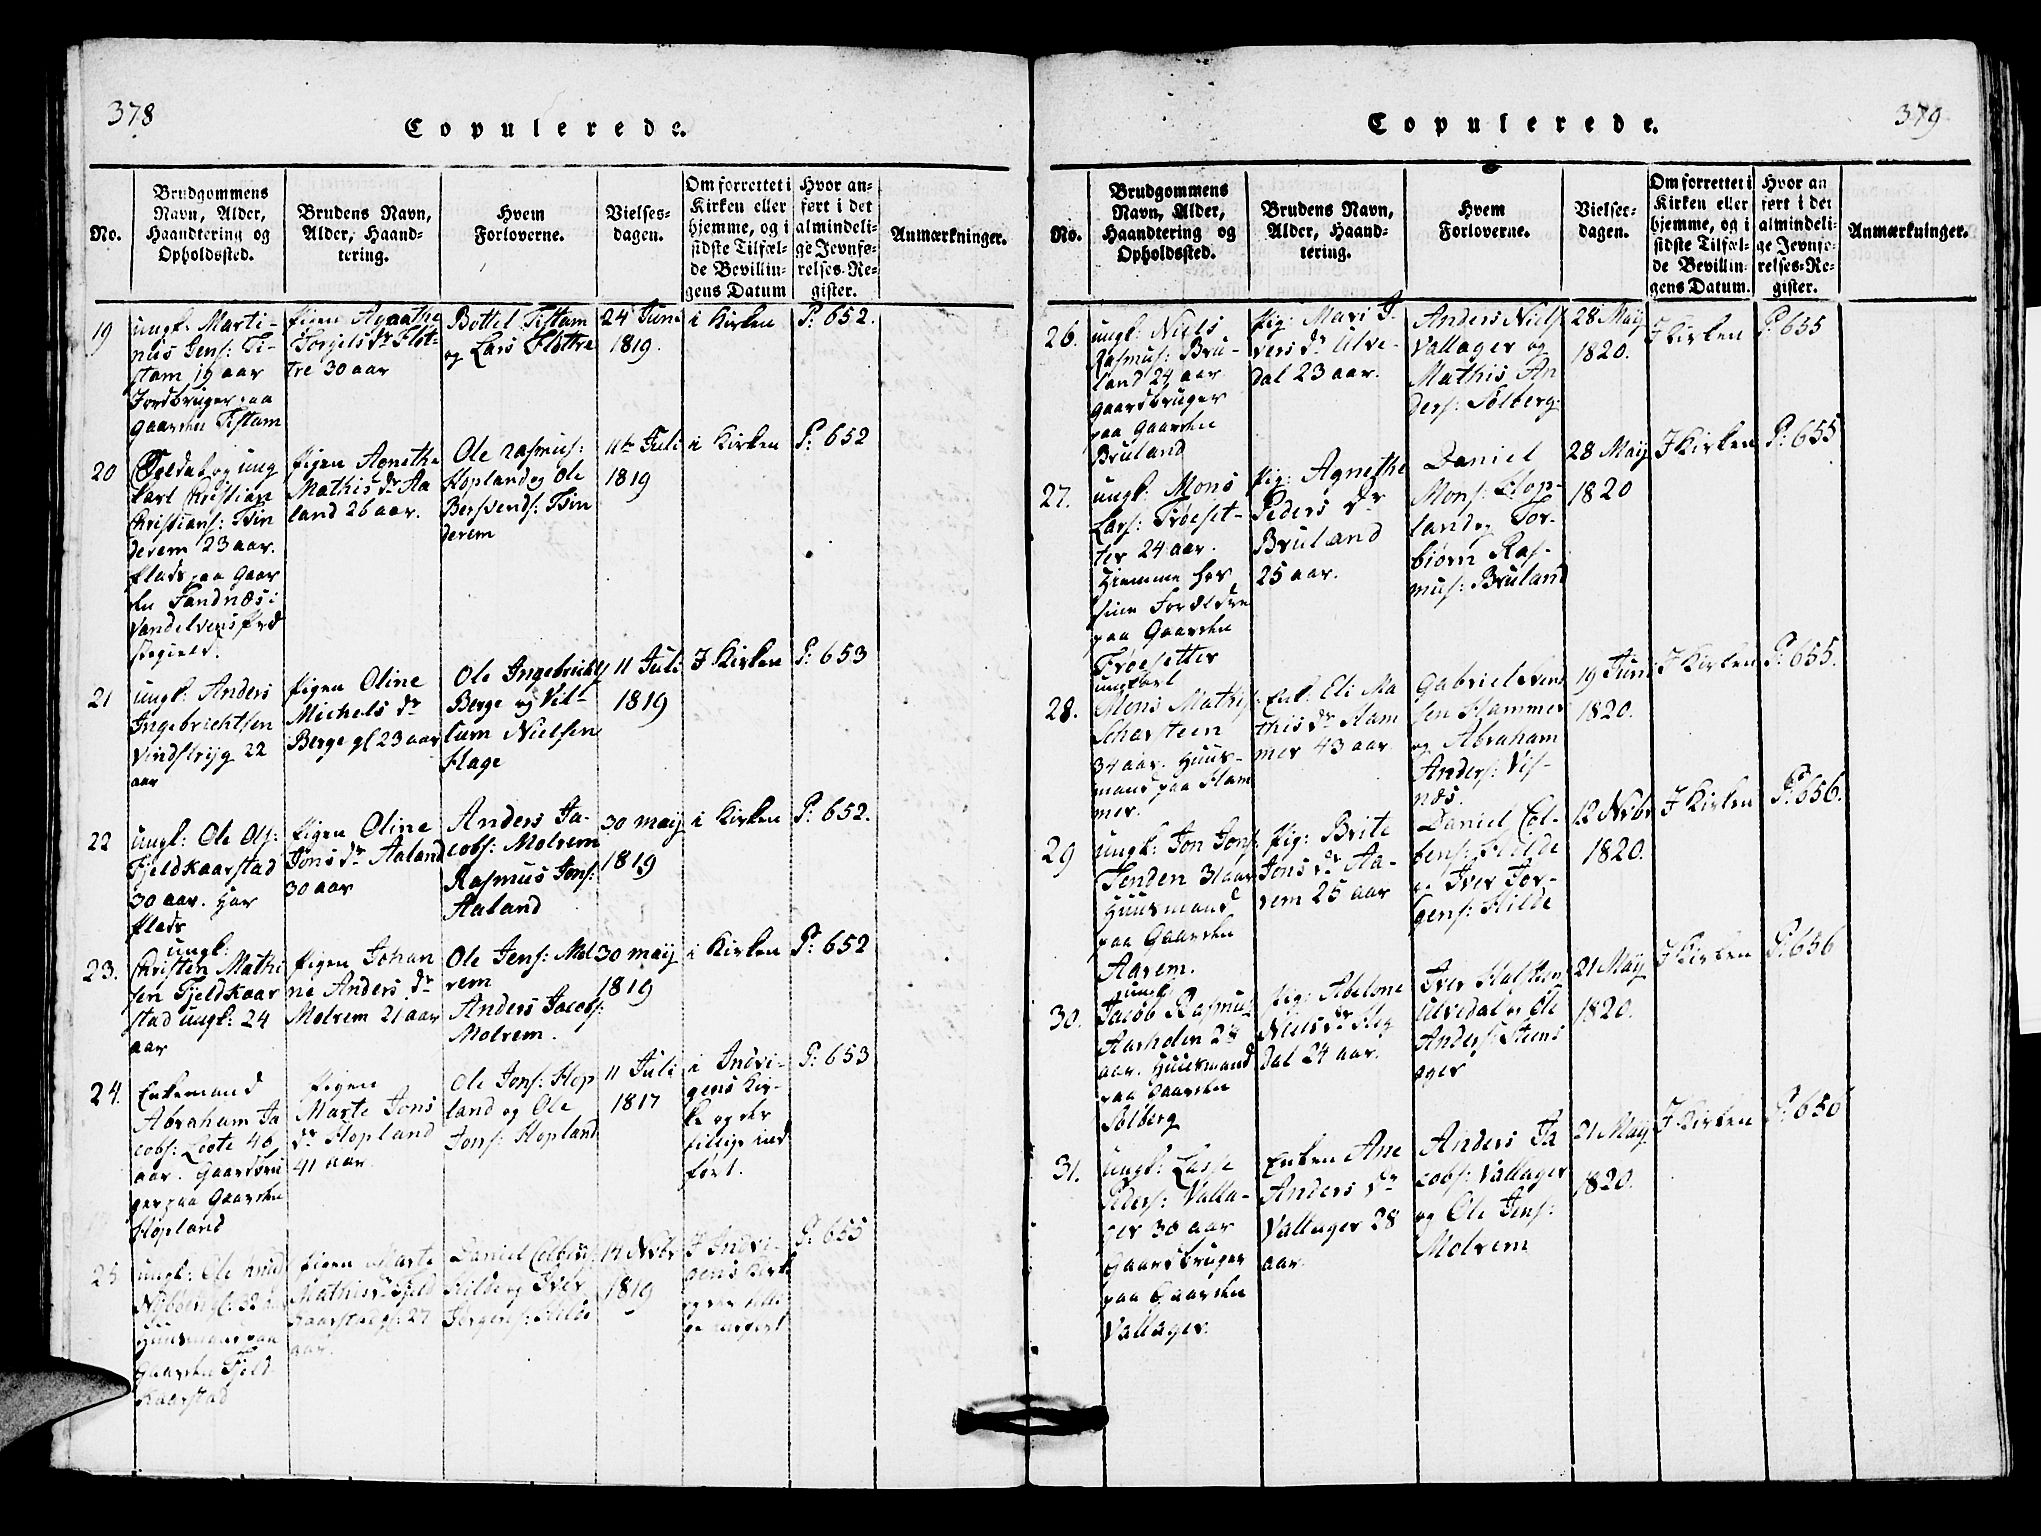 378
Copulerede.
No.
Brudgommens
Navn, Alder,
Haandtering og
Opholdssted.
Brudens Navn,
Alder, Haand-
tering.
Hvem
Forloverne.
Vielses-
dagen.
Om forrettet i
Kirken eller
hjemme, og i
sidste Tilfæl-
de Bevillin-
gens Datum
Hvor an-
ført i det
almindeli-
ge Jevnfø-
relses-Re-
gister.
Anmærkninger.
19
ungk: Marti-
nus Jens: Ti-
stam 19 aar
Jordbruger paa
Gaarden Tistam
Pigen Agnethe
Torgels Dr Flot-
tre 30 aar
Bottel Tistam
og Lars Flottre
24 Juni
1819.
i Kirken
P: 652.
20
Soldat og ung
karl Christian
Christians: Tvin
derem 23 aar.
Plads paa Gaar
den Sandnæs i
Vandelvens Præ
stegield.
Pigen Agnethe
Mathis Dr Aa
land 26 aar.
Ole Rasmus:
Hopland og Ole
Bersvends: Tvin
derem
11te Juli
1819
i Kirken
P: 652
21
ungk: Anders
Ingebrichtsen
Vindsrijg 22
aar
Pigen Oline
Michels Dr
Berge gl 23 aar
Ole Ingebricht
Berge og Vil-
lum Nielsen
Hage
11 Juli
1819
I Kirken
P: 653
22
ungk: Ole Ols:
Fjeldkaarstad
30 aar. Har
Plads
Pigen Oline
Jons Dr Aaland
30 aar
Anders Ja-
cobs: Molrem
Rasmus Jons:
Aaland
30 maij
1819
i Kirken
P: 652.
23.
ungk:
Christen Mathi
sen Fjeldkaar
stad ungk: 24
aar
Pigen Johan
ne Anders Dr
Molrem 21 aar
Ole Jens: Mol
rem
Anders Jacobs:
Molrem.
30 maij
1819
i Kirken
P: 652
24.
Enkemand
Abraham Ja
cobs: Lote 46
aar. Gaardbru
ger paa Gaarden
Hopland
Pigen
Marte Jons
Dr Hopland
41 aar.
Ole Jons: Hop
land og Ole
Jons: Hopland
11 Juli
1817
i Indvi-
gens Kir-
ke og der
tillige ind
ført.
P: 653
25
ungk: Ole Knud
Nybøe gl: 32 aar
Huusmand paa
Gaarden Fjeld
Kaarstad
Pigen Marte
Mathis Dr Fjeld
kaarstad gl: 27
aar.
Daniel Colbens:
Hilde og Iver
Jørgens: Hilde
14 Nvbr
1819
I Indvi-
gens Kirke
og der tilli
ge indført
P: 655
379
Copulerede.
No.
Brudgommens
Navn, Alder,
Haandtering og
Opholdssted.
Brudens Navn,
Alder, Haand-
tering.
Hvem
Forloverne.
Vielses-
dagen.
Om forrettet i
Kirken eller
hjemme, og i
sidste Tilfæl-
de Bevillin-
gens Datum.
Hvor an
ført i det
almindeli-
ge Jevnfø-
relses-Re-
gister.
Anmærkninger.
26.
ungk: Niels
Rasmus: Bru-
land 24 aar
Gaardbruger
paa Gaarden
Bruland
Pig: Mari I-
vers Dr Ulve-
dal 23 aar.
Anders Niels
Vallager og
Mathis An
ders: Solberg
28 Maij
1820.
I Kirken
P: 655
27.
ungk: Mons
Lars: Frøeset-
ter 24 aar.
Hiemme hos
sine Forældre
paa Gaarden
Frøesetter
Pig: Agnethe
Peders Dr
Bruland
25 aar.
Daniel
Mons: Hop-
land og Tor-
biørn Ras-
mus: Bruland
28 Maij
1820
I Kirken
P: 655
28.
ungkarl
Mons Mathis:
Scharsteen
34 aar. Huus-
mand paa Ham
mer.
Enk: Eli Ma
this Dr Ham
mer 43 aar
Gabriel Svend
sen Hammer
og Abraham
Anders: Vis-
næs.
19 Juni
1820.
I Kirken
P: 655.
29
ungk: Jon Jons:
Tenden 31 aar
Huusmand
paa Gaarden
Aarem.
Pig: Brite
Jons Dr Aa-
rem 25 aar
Daniel Col-
bens: Hilde
og Iver Jør-
gens: Hilde
12 Nvbr
1820.
I Kirken
P: 656.
30.
ungk
Jacob Rasmus:
Aarholen 28
aar. Huusmand
paa Gaarden
Solberg
Pig: Abelone
Niels Dr Heg
dal 24 aar.
Iver Halsteens
Ulvedal og Ole
Anders: Steens
ager
21 Maij
1820.
I Kirken
P: 656
31.
ungk: Lasse
Peders: Valla-
ger 30 aar
Gaardbruger
paa Gaarden
Vallager.
Enken Ane
Anders Dr
Vallager 28
aar.
Anders Ja
cobs: Vallager
og Ole Jens:
Molrem
21 Maij
1820.
I Kirken
P: 656